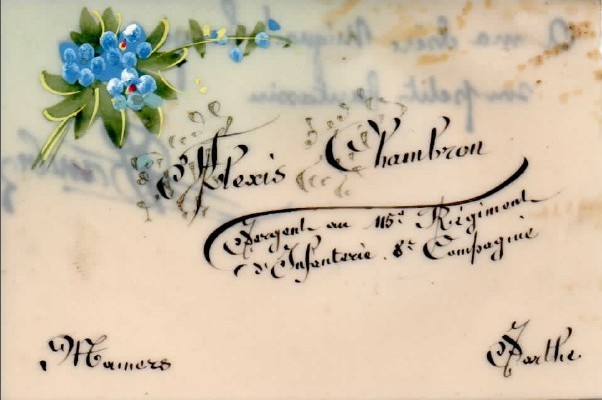 Alexis Chambron
Sergent au 115e Régiment
d'Infanterie 8e Compagnie
Mamers
Sarthe